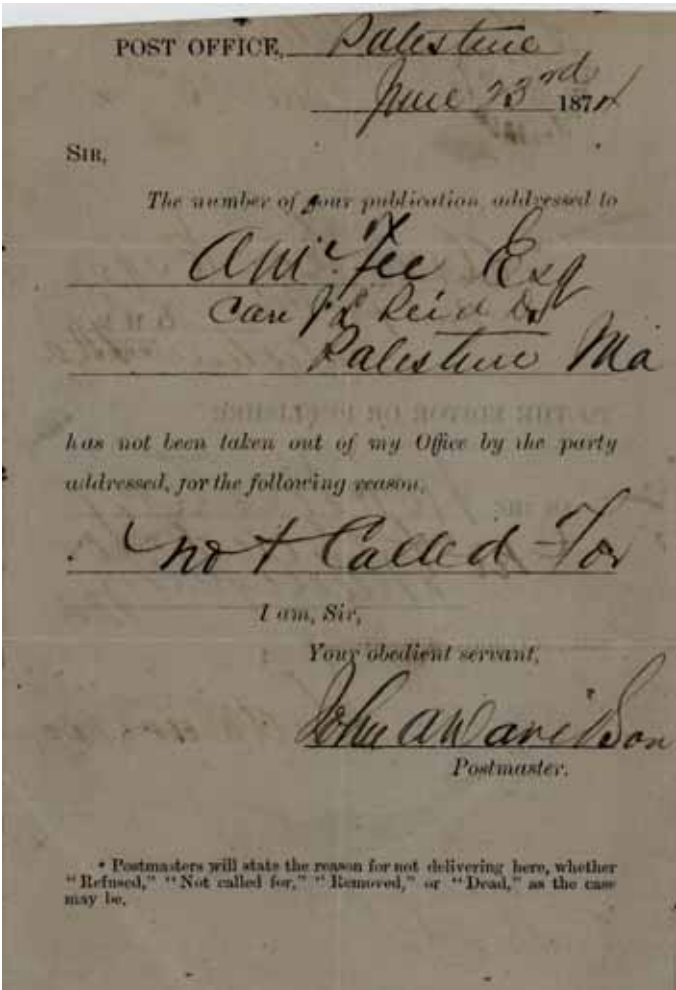 POST OFFICE, Palestine
June 23rd 1874
SIR,
The number of your publication addressed to
A McFee Esq
Care J Reid
Palestine Ma
has not been taken out of my Office by the party
addressed, for the following reason,
not Called For
I am, Sir,
Your obedient servant,
John A Davidson
Postmaster.
* Postmasters will state the reason for not delivering here, whether
"Refused," "Not called for," "Removed," or "Dead," as the case
may be.
TO THE EDITOR OR PUBLISHER